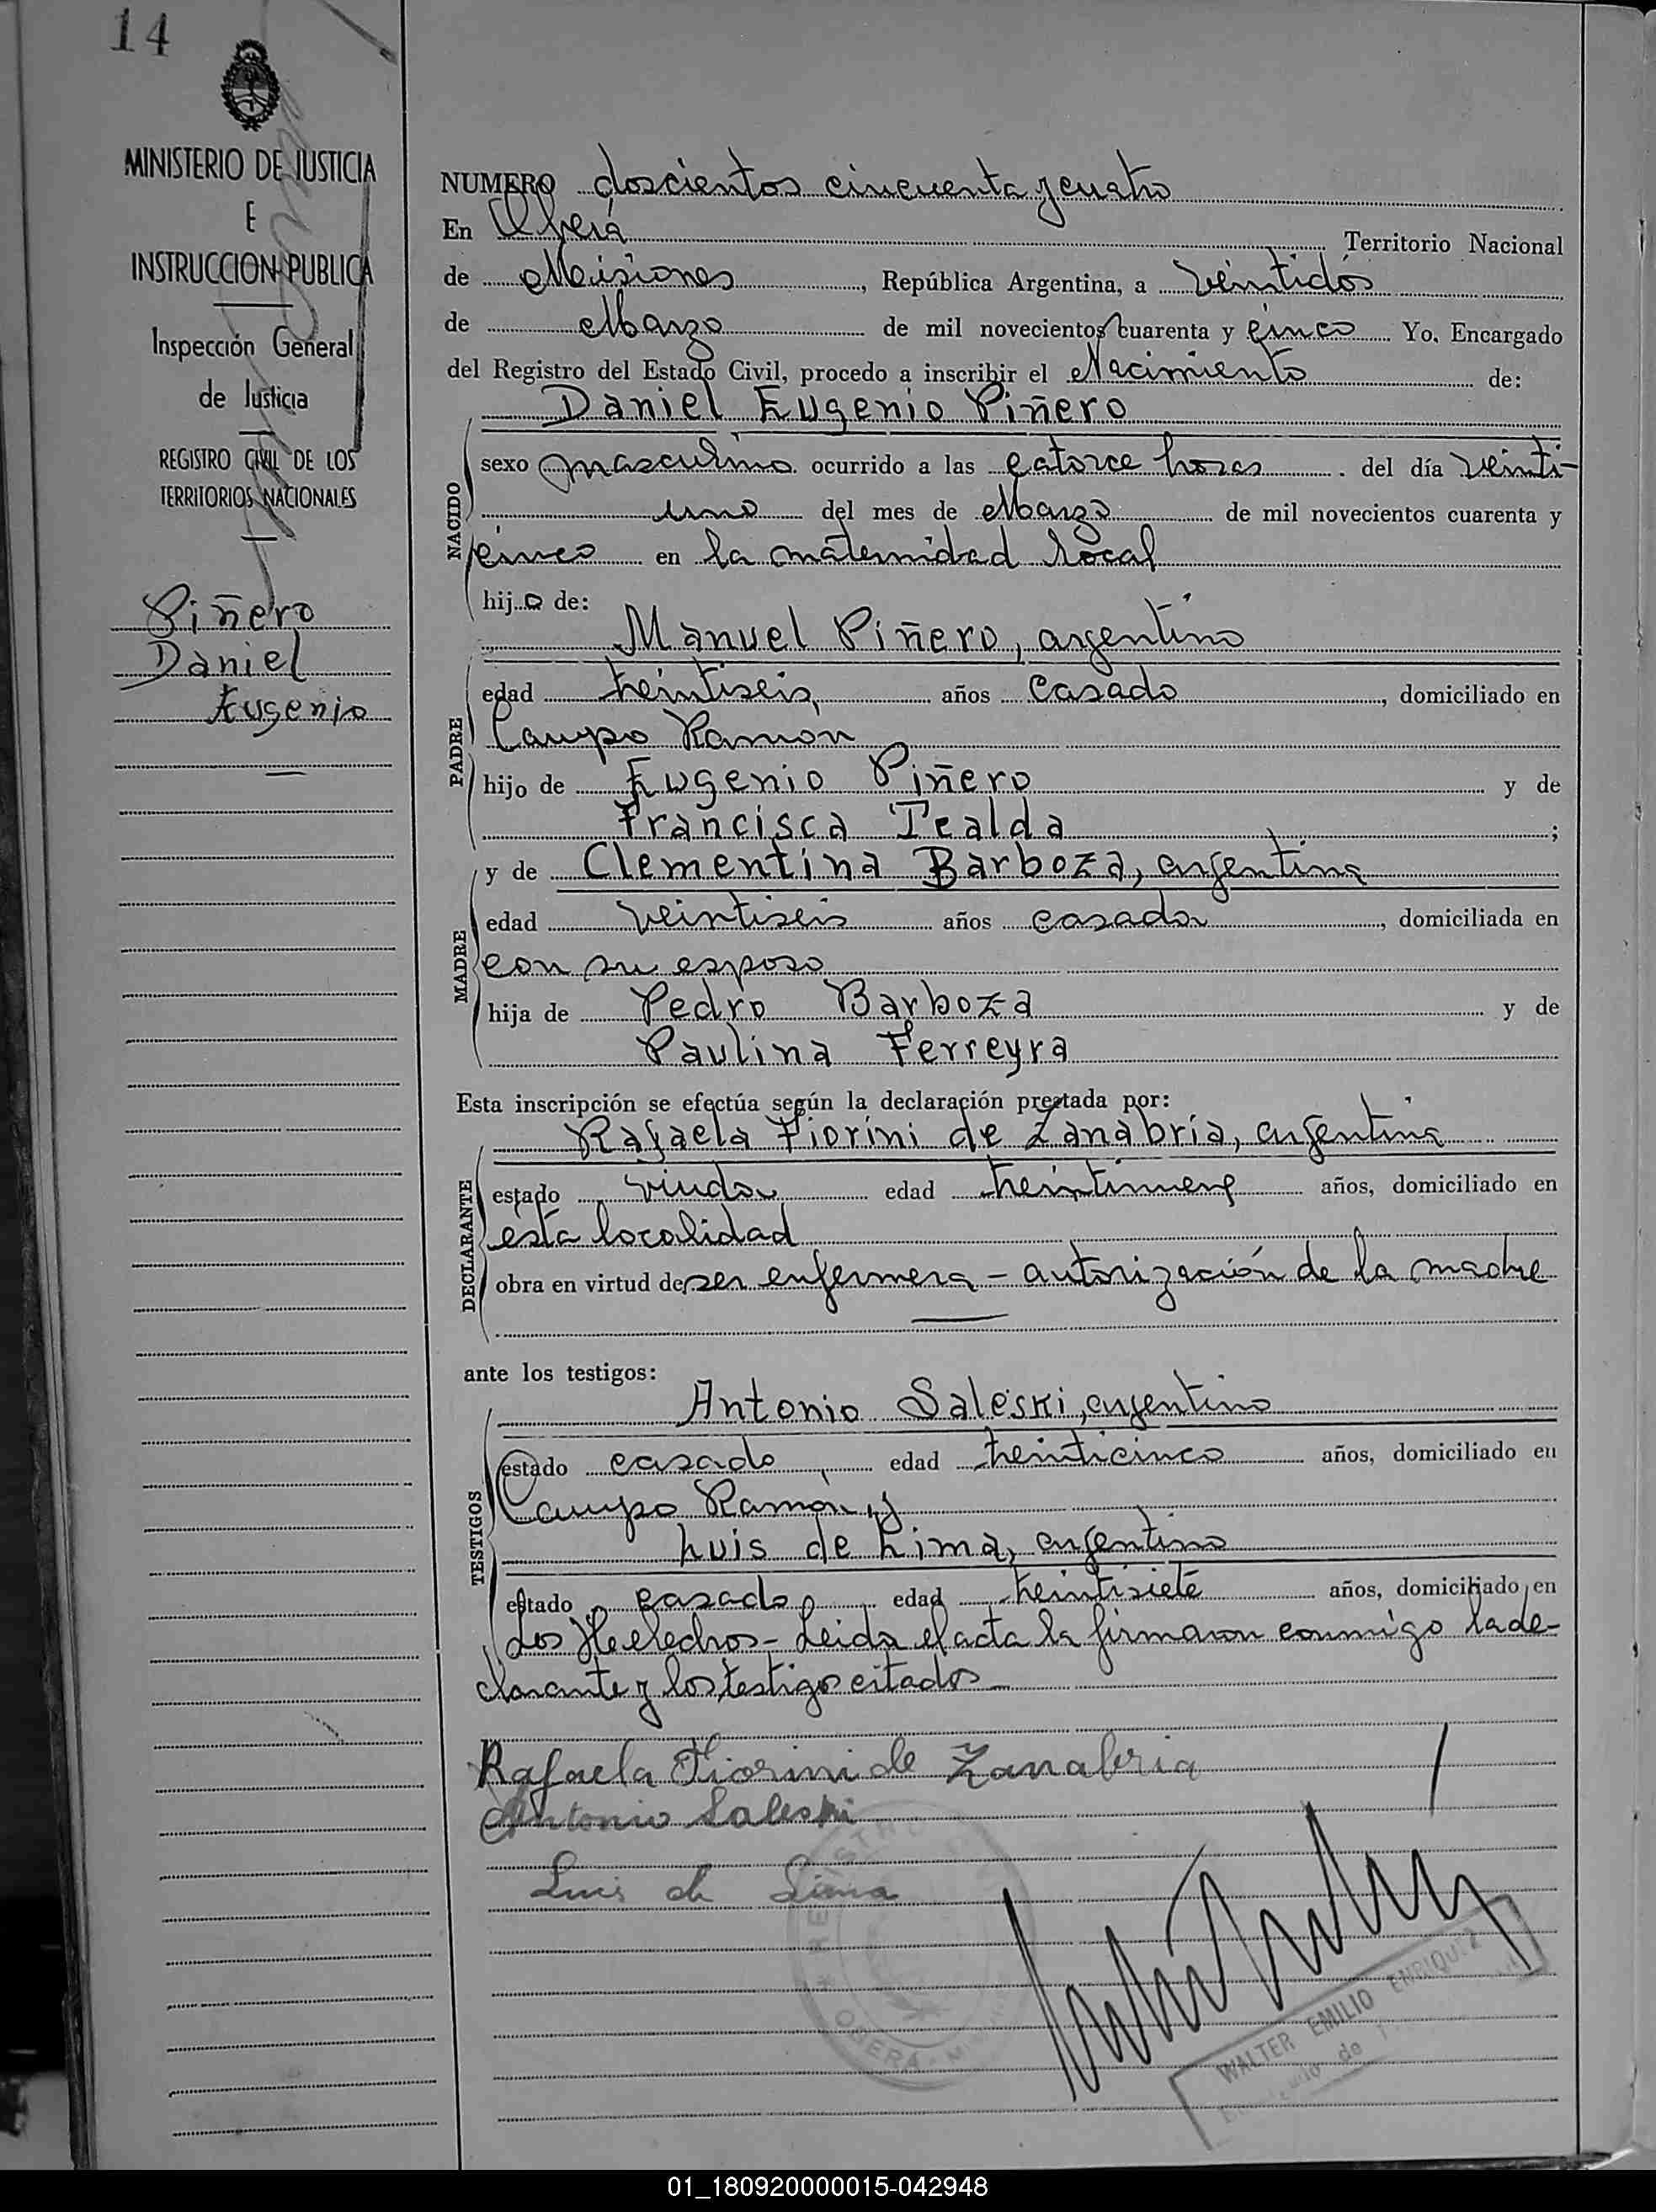 14
MINISTERIO DE JUSTICIA
E
INSTRUCCION PUBLICA
Inspección General
de Justicia
REGISTRO CIVIL DE LOS
TERRITORIOS NACIONALES
Piñero
Daniel
Eugenio
NUMERO doscientos cincuenta y cuatro
En Oberá Territorio Nacional
de Misiones, República Argentina, a veintidós
de Marzo de mil novecientos cuarenta y cinco Yo, Encargado
del Registro del Estado Civil, procedo a inscribir el Nacimiento de:
Daniel Eugenio Piñero
NACIDO
sexo masculino ocurrido a las catorce horas del día veinti-
uno del mes de Marzo de mil novecientos cuarenta y
cinco en la maternidad local
hijo de:
Manuel Piñero, argentino
PADRE
edad treintiseis, años casado, domiciliado en
Campo Ramon
hijo de Eugenio Piñero y de
Francisca Tealda;
y de Clementina Barboza, argentina
MADRE
edad veintiseis años casada, domiciliada en
con su esposo
hija de Pedro Barboza y de
Paulina Ferreyra
Esta inscripción se efectúa según la declaración prestada por:
Rafaela Fiorini de Zanabria, argentina
DECLARANTE
estado viuda edad treintinueve años, domiciliado en
esta localidad
obra en virtud de ser enfermera - autorización de la madre
ante los testigos:
Antonio Saleski, argentino
TESTIGOS
estado casado edad treinticinco años, domiciliado en
Campo Ramón, y
Luis de Lima, argentino
estado casado edad treintisiete años, domiciliado en
Los Helechos - Leida el acta la firmaron conmigo la de-
clarante y los testigos citados
Rafaela Fiorini de Zanabria
Antonio Saleski
Luis de Lima
REGISTRO
OBERA - M
WALTER EMILIO ENRIQUEZ
01_180920000015-042948